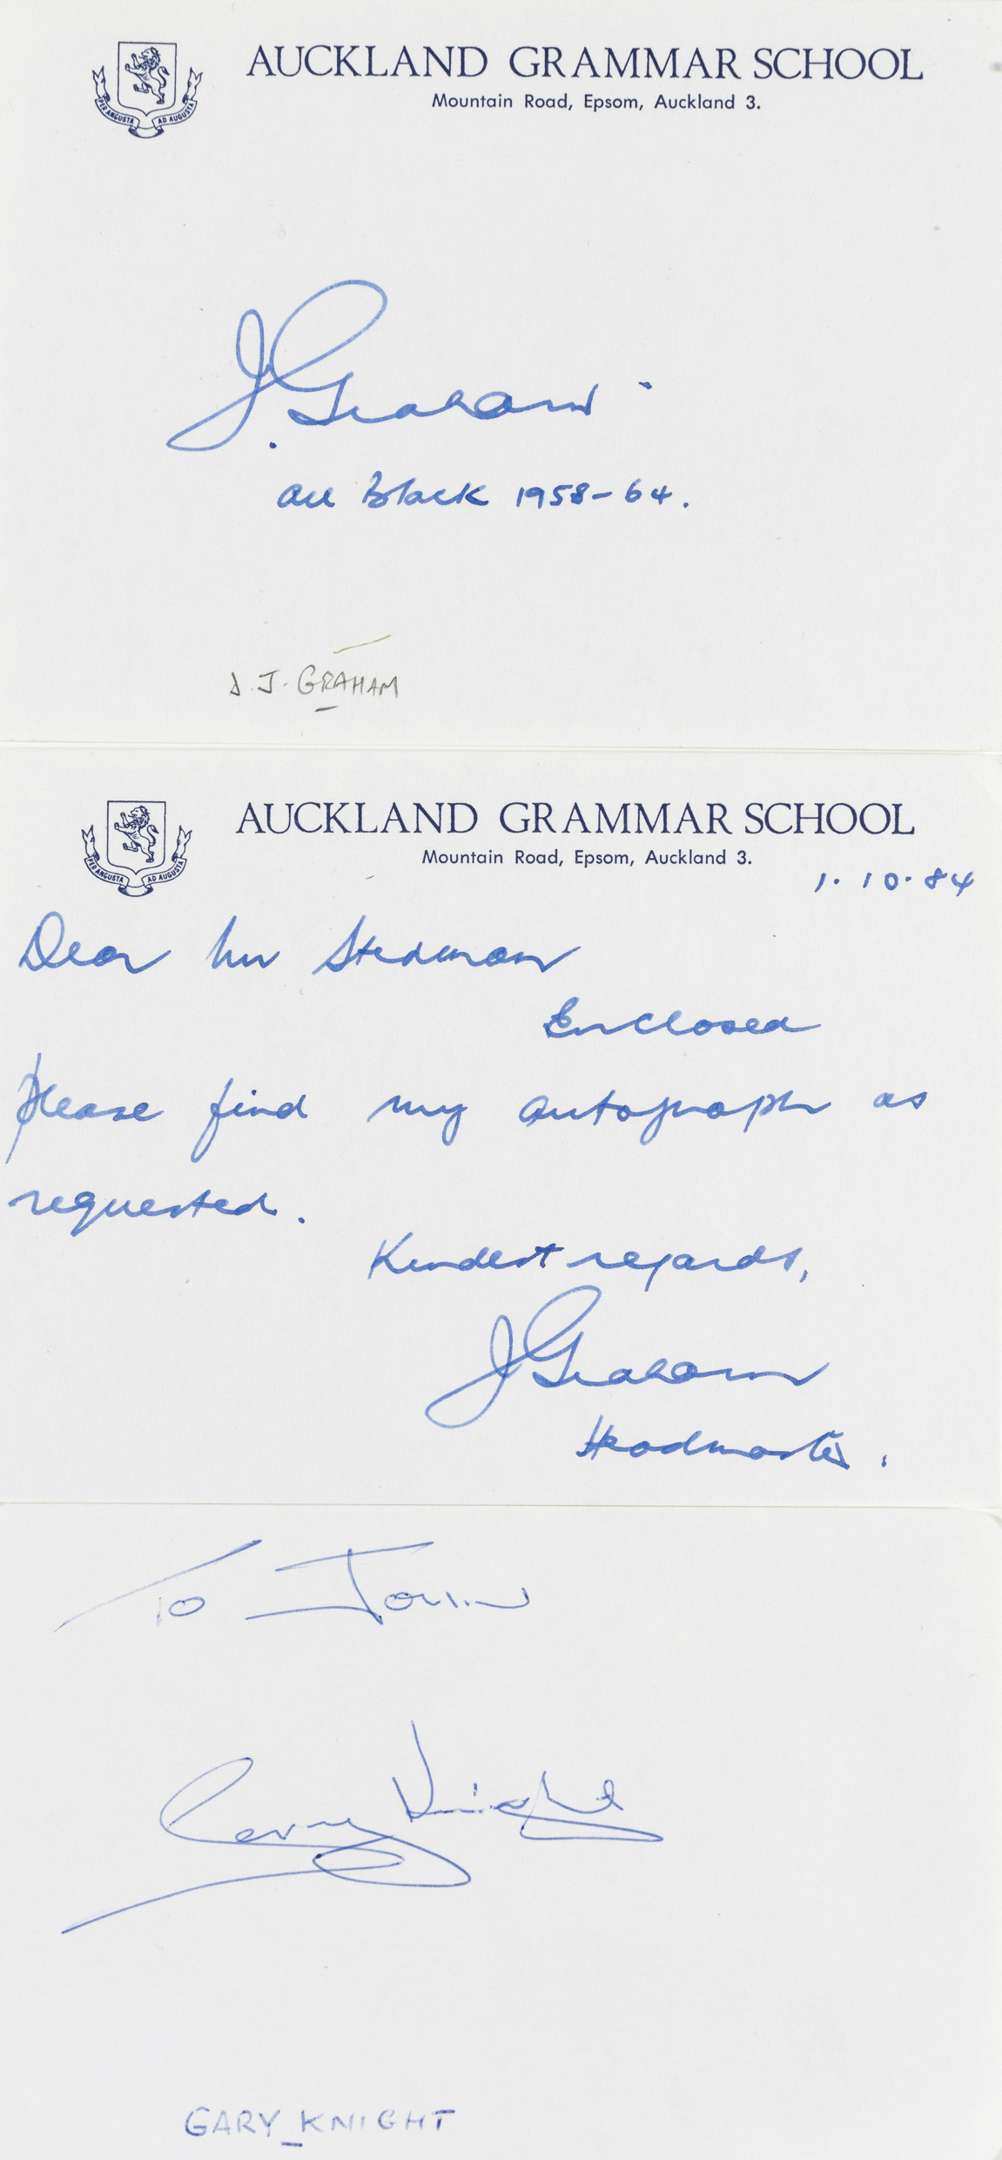 AUCKLAND GRAMMAR SCHOOL
Mountain Road, Epsom, Auckland 3.
PER ANGUSTA AD AUGUSTA
J. Graham
All Black 1958-64.
J. GRAHAM
AUCKLAND GRAMMAR SCHOOL
Mountain Road, Epsom, Auckland 3.
PER ANGUSTA AD AUGUSTA
1.10.84
Dear Mr Stedman
Enclosed
please find my autograph as
requested.
Kindest regards,
J Graham
Headmaster.
To
Gary Knight
GARY KNIGHT